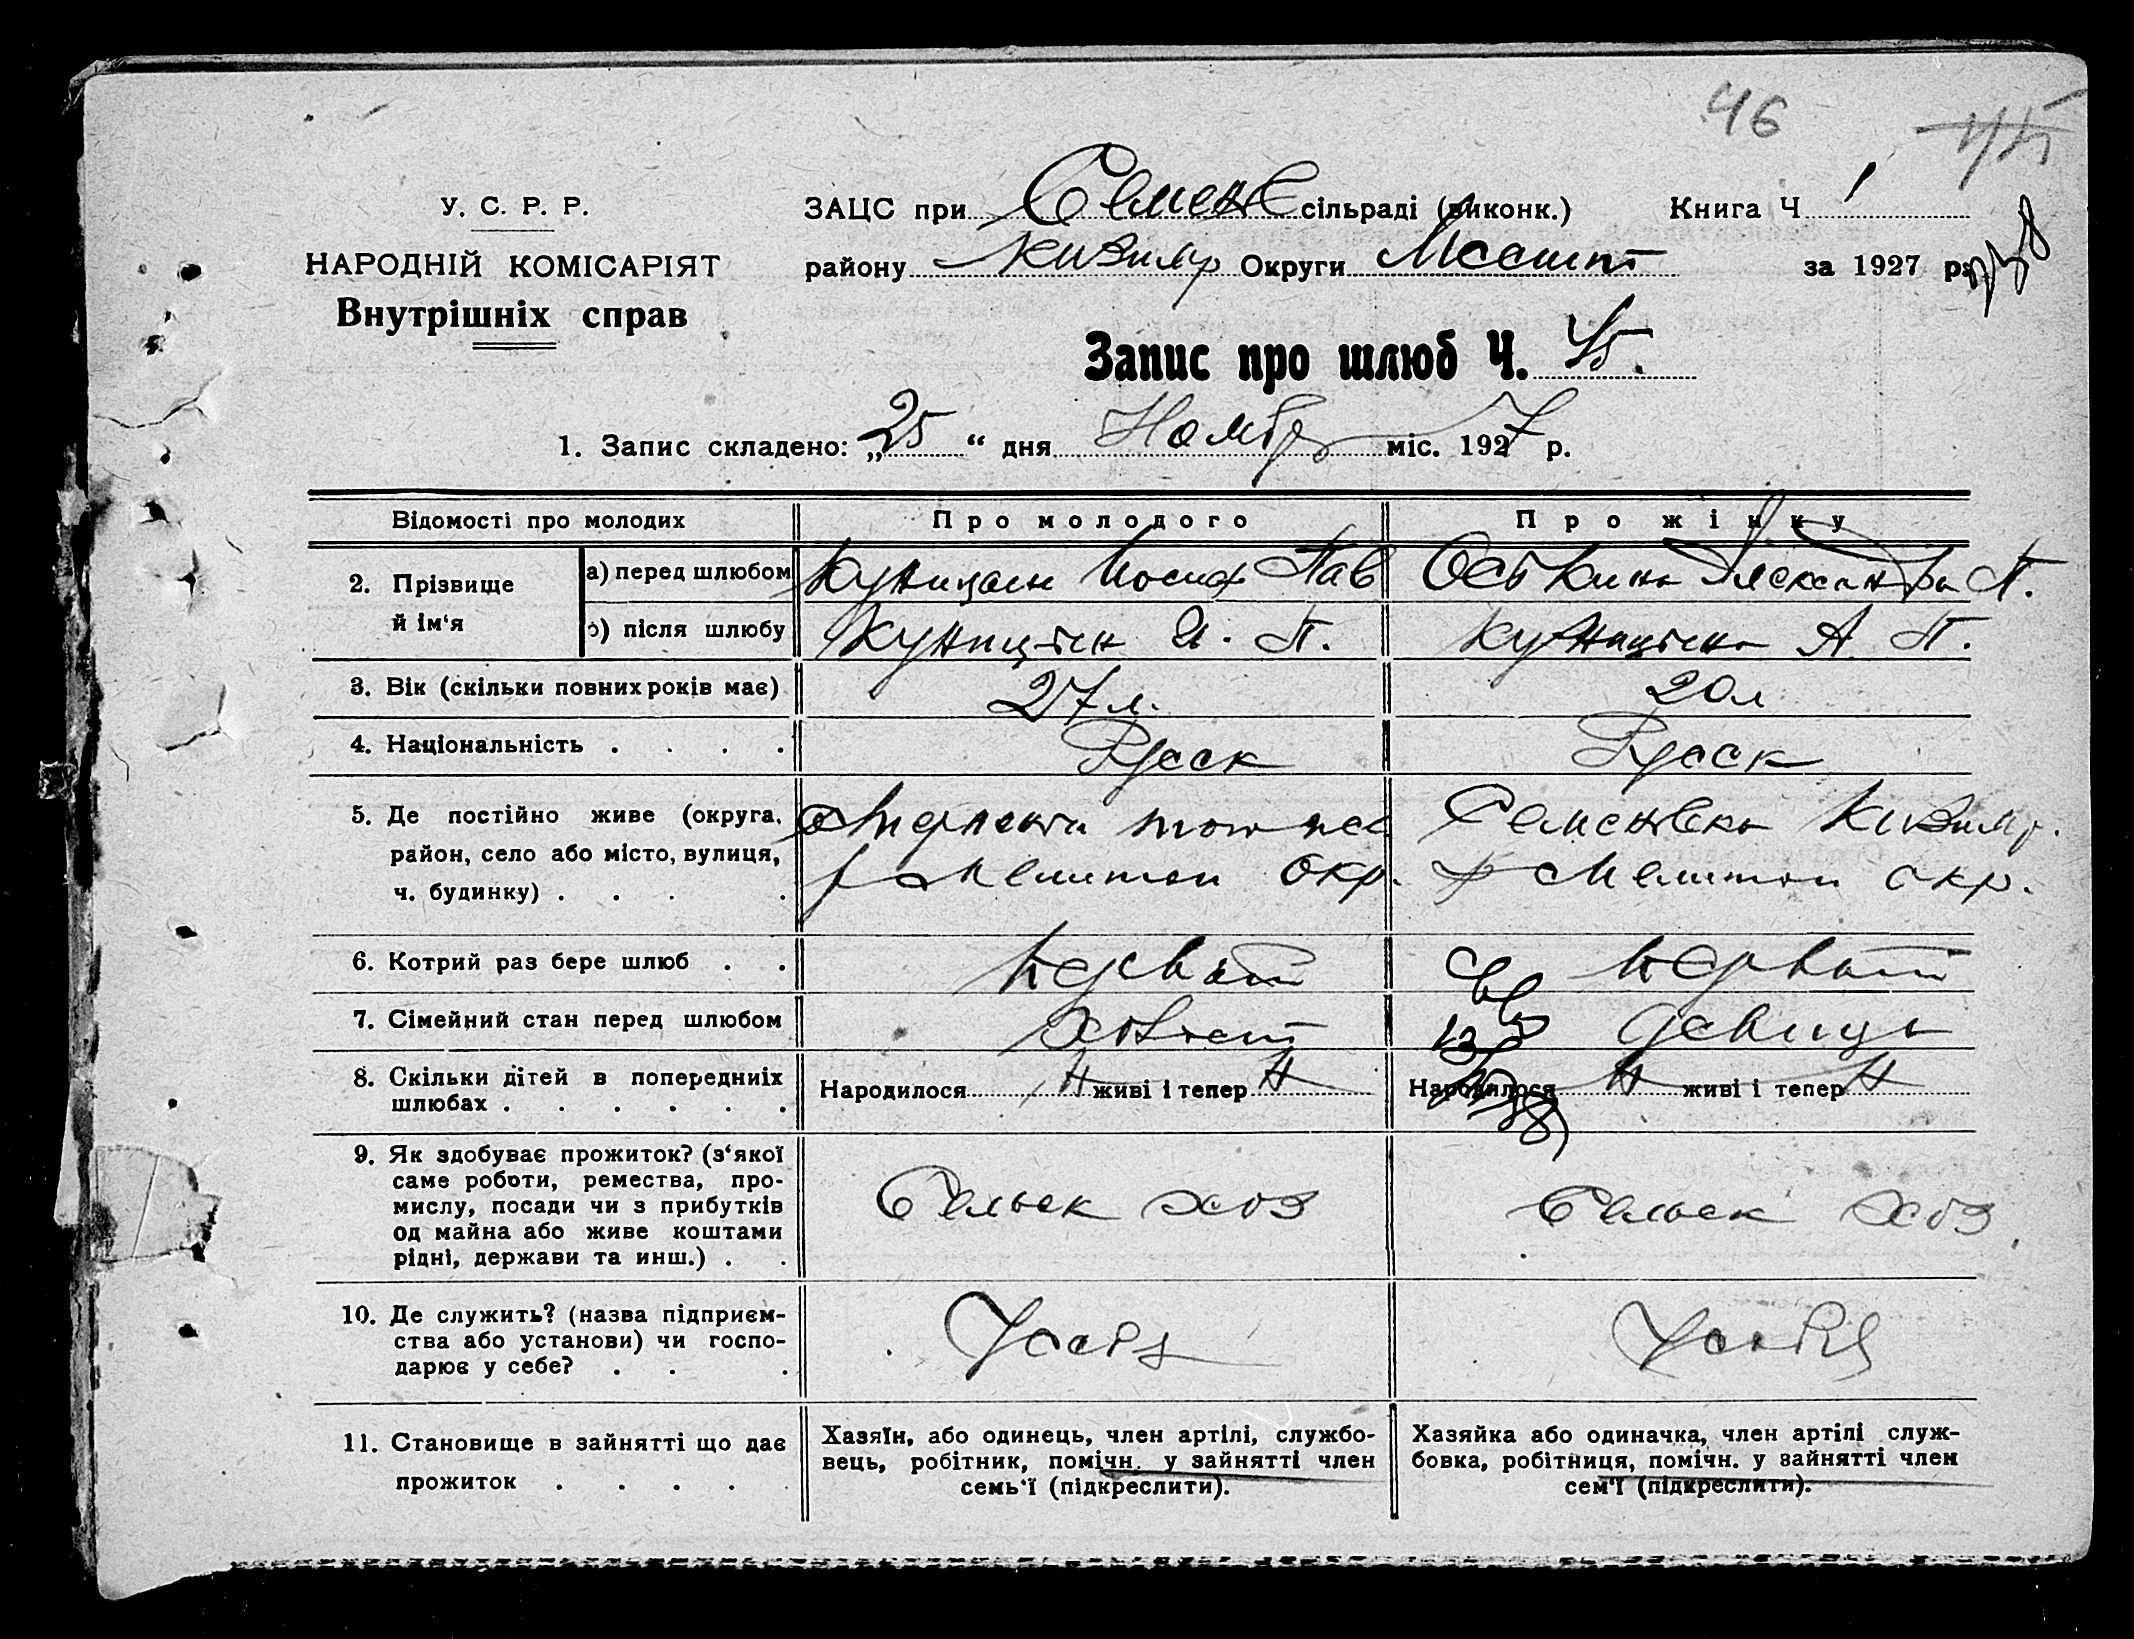 46
У. С. Р. Р.
НАРОДНІЙ КОМІСАРІЯТ
Внутрішніх справ
ЗАЦС при Семенов сільраді (виконк.) Книга Ч 1
району Кизияр Округи за 1927 р.
Запис про шлюб Ч. 45.
1. Запис складено: „25“ дня Ноября міс. 1927 р.
Відомості про молодих Про молодого Про жінку
2. Прізвище й ім‘я
а) перед шлюбом Куницын Иосиф Пав Оськина Александра П.
б) після шлюбу Куницын И. П. Куницына А. П.
3. Вік (скільки повних років має) 27 л. 20 л
4. Національність . . . . Русск Русск
5. Де постійно живе (округа, район, село або місто, вулиця, ч. будинку) . . . .
Мелитоп окр.
Семеновка Кизияр. р Мелитоп окр.
6. Котрий раз бере шлюб . . первый первый
7. Сімейний стан перед шлюбом Холост девица
8. Скільки дітей в попередниіх шлюбах . . . . . .
Народилося Н живі і тепер Н
Народилося Н живі і тепер Н
9. Як здобуває прожиток? (з‘якої саме роботи, ремества, промислу, посади чи з прибутків од майна або живе коштами рідні, держави та инш.) . .
Сельск хоз
Сельск хоз
10. Де служить? (назва підприємства або установи) чи господарює у себе? . . .
11. Становище в зайнятті що дає прожиток . . . .
Хазяїн, або одинець, член артілі, службовець, робітник, помічн. у зайнятті член семь‘ї (підкреслити).
Хазяйка або одиначка, член артілі службовка, робітниця, помічн. у зайнятті член сем‘ї (підкреслити).